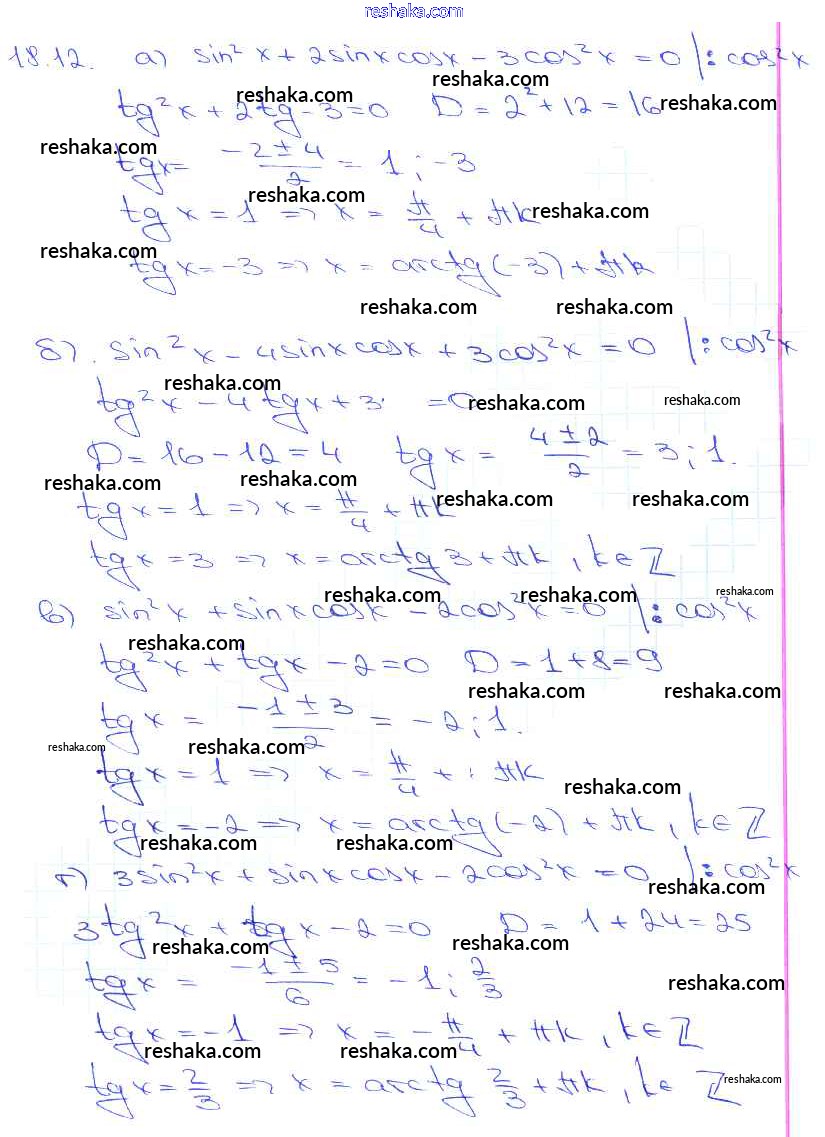 reshaka.com
18.12. а) sin² x + 2sinx cosx - 3cos²x = 0 |: cos²x
reshaka.com
tg²x + 2tg - 3 = 0 D = 2² + 12 = 16
reshaka.com reshaka.com
reshaka.com
tgx = (-2 ± 4)/2 = 1 ; -3
reshaka.com
tg x = 1 => x = π/4 + πk
reshaka.com
reshaka.com
tgx = -3 => x = arctg(-3) + πk
reshaka.com reshaka.com
б). sin²x - 4sinx cosx + 3cos²x = 0 |: cos²x
reshaka.com
tg²x - 4tgx + 3 = 0
reshaka.com reshaka.com
D = 16 - 12 = 4 tgx = (4 ± 2)/2 = 3 ; 1.
reshaka.com reshaka.com
reshaka.com reshaka.com
tgx = 1 => x = π/4 + πk
tgx = 3 => x = arctg 3 + πk , k ∈ Z
reshaka.com reshaka.com reshaka.com
в) sin²x + sinx cosx - 2cos²x = 0 |: cos²x
reshaka.com
tg²x + tgx - 2 = 0 D = 1 + 8 = 9
reshaka.com reshaka.com
tgx = (-1 ± 3)/2 = -2 ; 1.
reshaka.com reshaka.com
tgx = 1 => x = π/4 + πk
reshaka.com
tgx = -2 => x = arctg(-2) + πk , k ∈ Z
reshaka.com reshaka.com
г) 3sin²x + sinx cosx - 2cos²x = 0 |: cos²x
reshaka.com
3tg²x + tgx - 2 = 0 D = 1 + 24 = 25
reshaka.com reshaka.com
tgx = (-1 ± 5)/6 = -1 ; 2/3
reshaka.com
tgx = -1 => x = -π/4 + πk , k ∈ Z
reshaka.com reshaka.com
tgx = 2/3 => x = arctg 2/3 + πk , k ∈ Z
reshaka.com